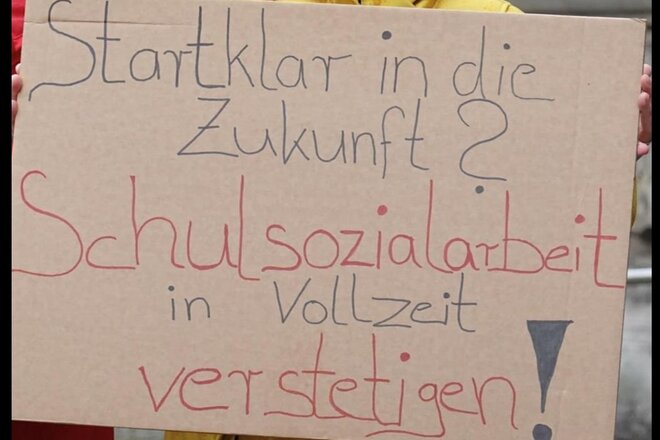 Startklar in die
Zukunft?
Schulsozialarbeit
in Vollzeit
verstetigen!